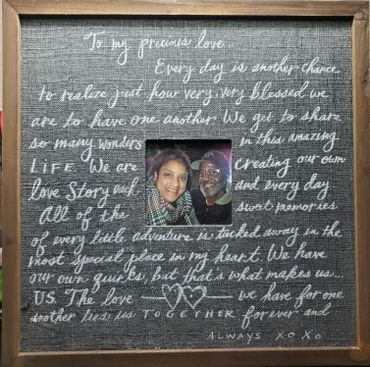 To my precious love...
Every day is another chance
to realize just how very, very blessed we
are to have one another. We get to share
so many wonders in this amazing
LIFE. We are creating our own
love Story each and every day
All of the sweet memories
of every little adventure is tucked away in the
most special place in my heart. We have
our own quirks, but that's what makes us...
US. The love we have for one
another ties us TOGETHER forever and
ALWAYS XOXO